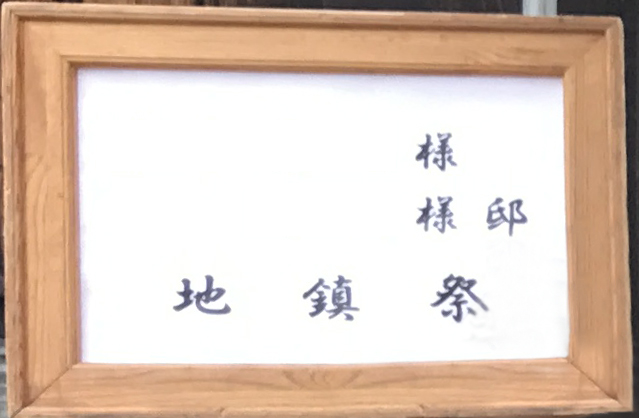 様
様 邸
地 鎮 祭